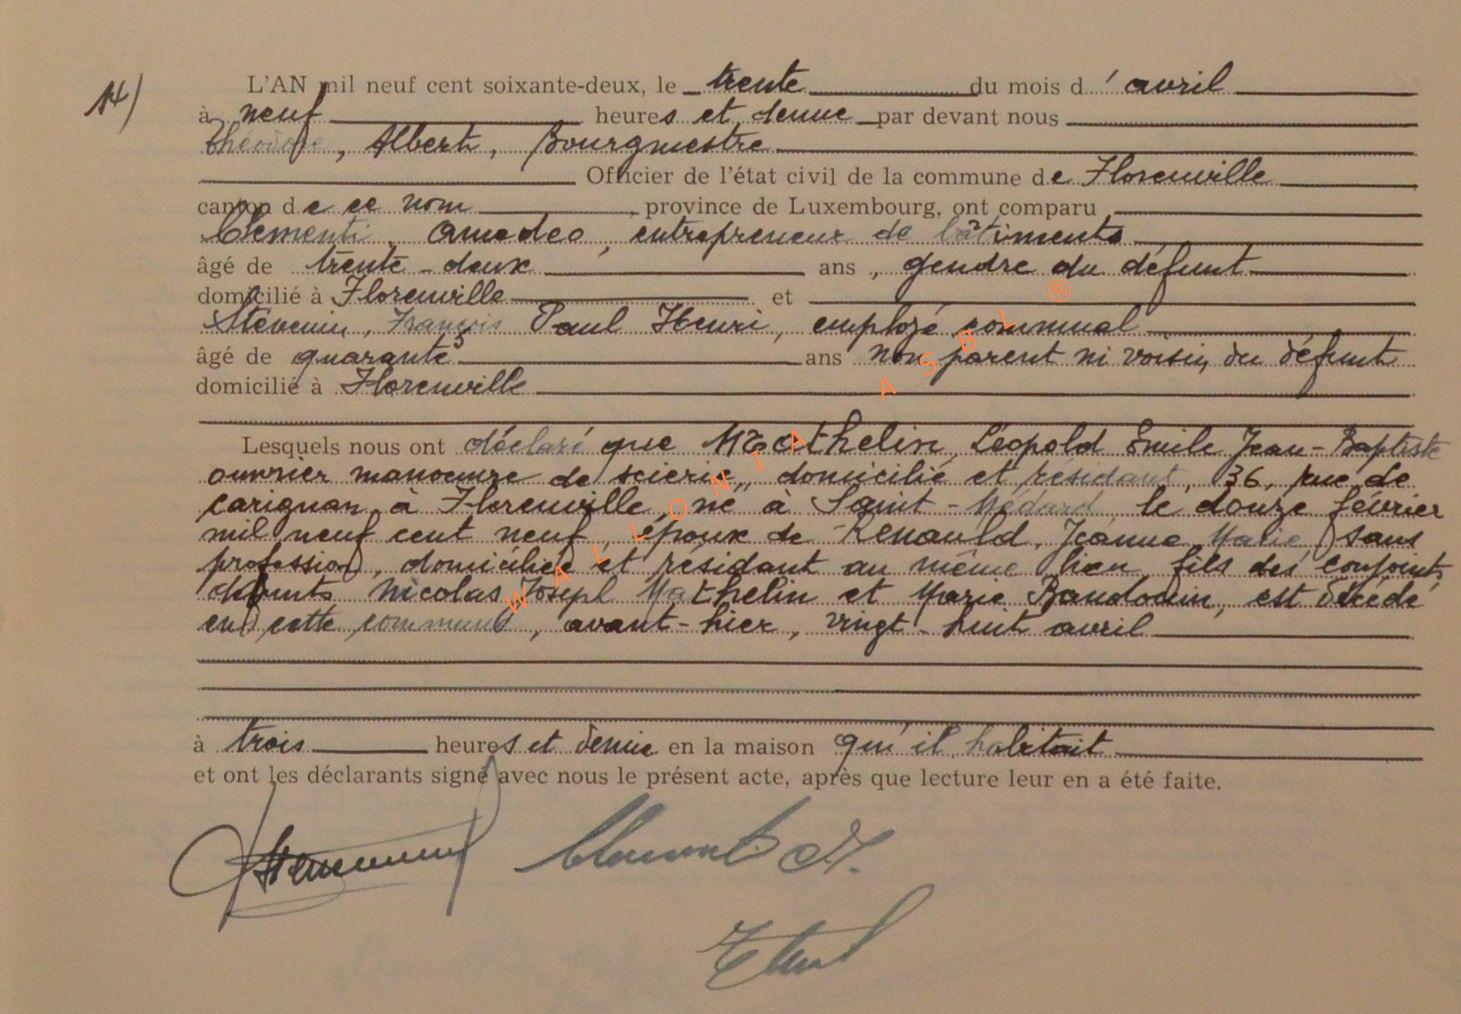 14)
L'AN mil neuf cent soixante-deux, le trente du mois d' avril
à neuf heures et demie par devant nous
Théodore, Albert, Bourgmestre
Officier de l'état civil de la commune de Florenville
canton de ce nom, province de Luxembourg, ont comparu
Clementi, Amedeo, entrepreneur de bâtiments
âgé de trente-deux ans, gendre du défunt
domicilié à Florenville et
Stévenin, François Paul Henri, employé communal
âgé de quarante ans non parent ni voisin du défunt
domicilié à Florenville
Lesquels nous ont déclaré que Mathelin, Léopold Emile Jean-Baptiste
ouvrier manoeuvre de scierie, domicilié et résidant, 36, rue de
Carignan à Florenville, né à Saint-Médard, le douze février
mil neuf cent neuf, époux de Renauld, Jeanne Marie, sans
profession, domiciliée et résidant au même lieu, fils des conjoints
défunts Nicolas Joseph Mathelin et Marie Baudouin, est décédé
en cette commune, avant-hier, vingt-huit avril
à trois heures et demie en la maison qu'il habitait
et ont les déclarants signé avec nous le présent acte, après que lecture leur en a été faite.
Clementi A.
WALLONIA ASBL ®